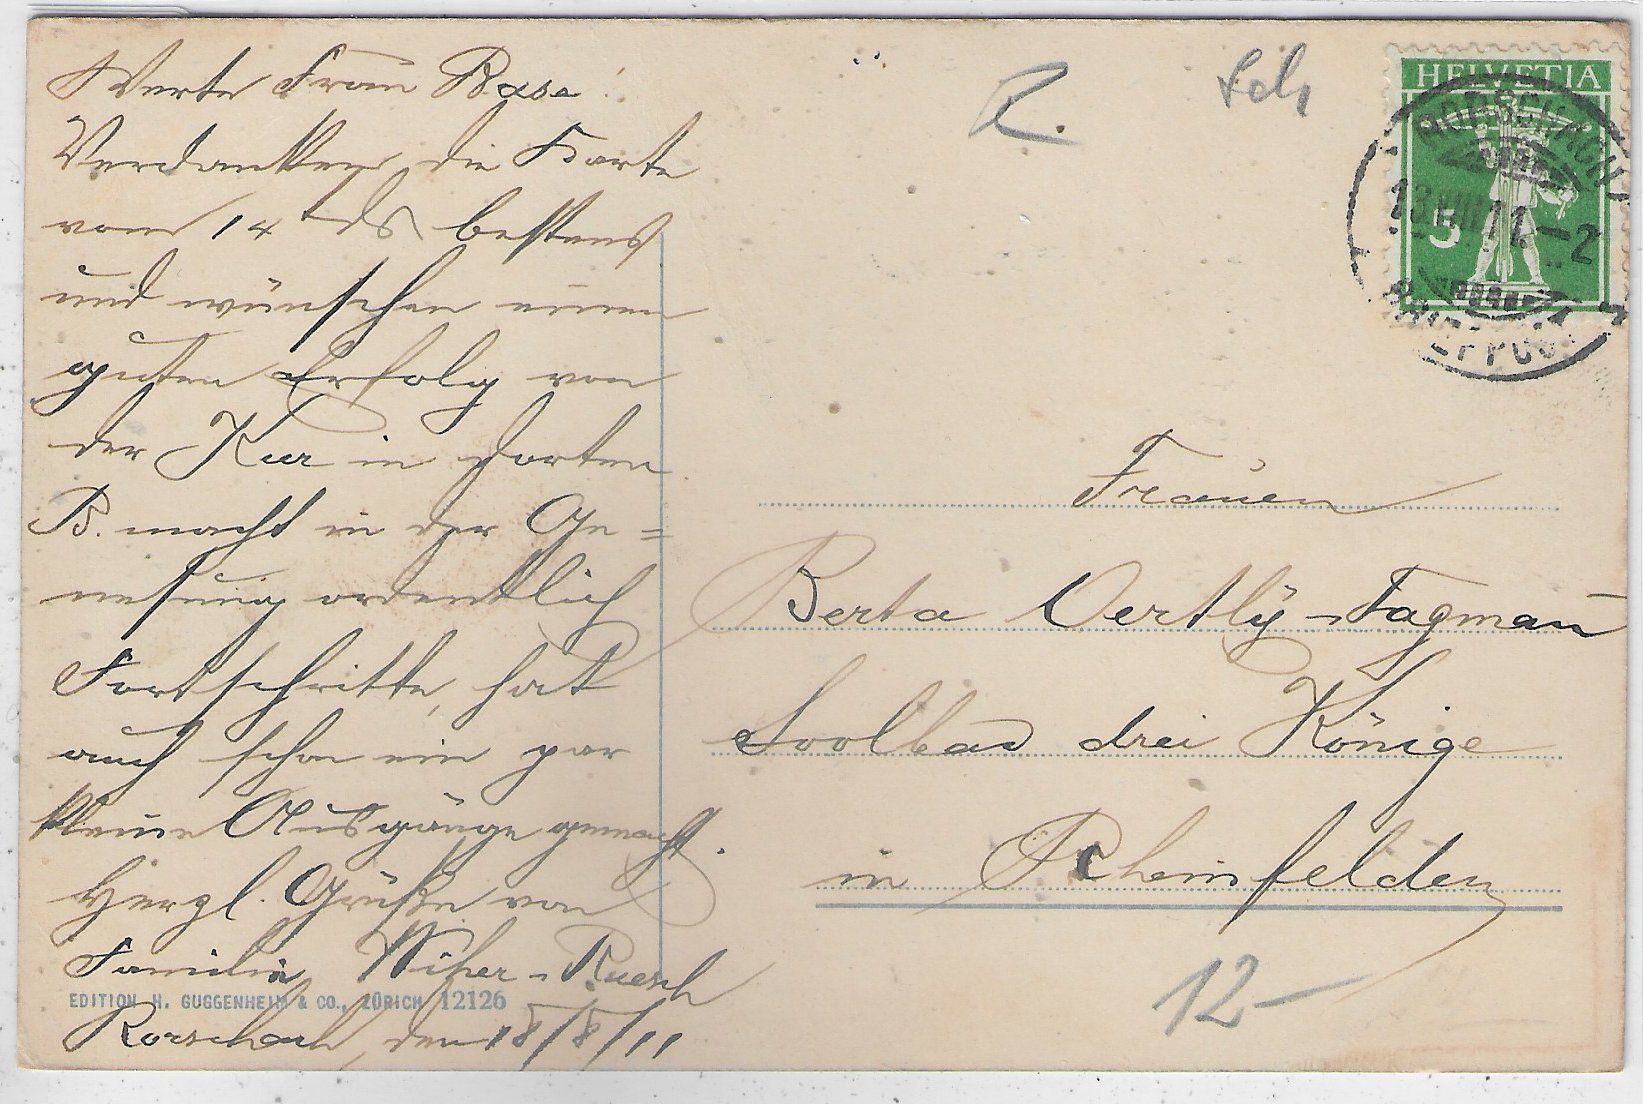 Werte Frau Base!
Verdanken die Karte
vom 14ten ds bestens
und wünschen einen
guten Erfolg von
der Kur in dorten
B. macht in der Ge=
nesung ordentlich
Fortschritte, hat
auch schon ein par
kleine Ausgänge gemacht.
Herzl. Grüße von
Familie Wiher-Ruesch
Rorschach, den 18/8/11
EDITION H. GUGGENHEIM & CO., ZÜRICH 12126
R.
Sch
HELVETIA
5
RORSCHACH
VIII 11.-2
BRIEFPOST
Frauen
Berta Oertly-Fagman̄
Soolbad drei Könige
in Rheinfelden
12-